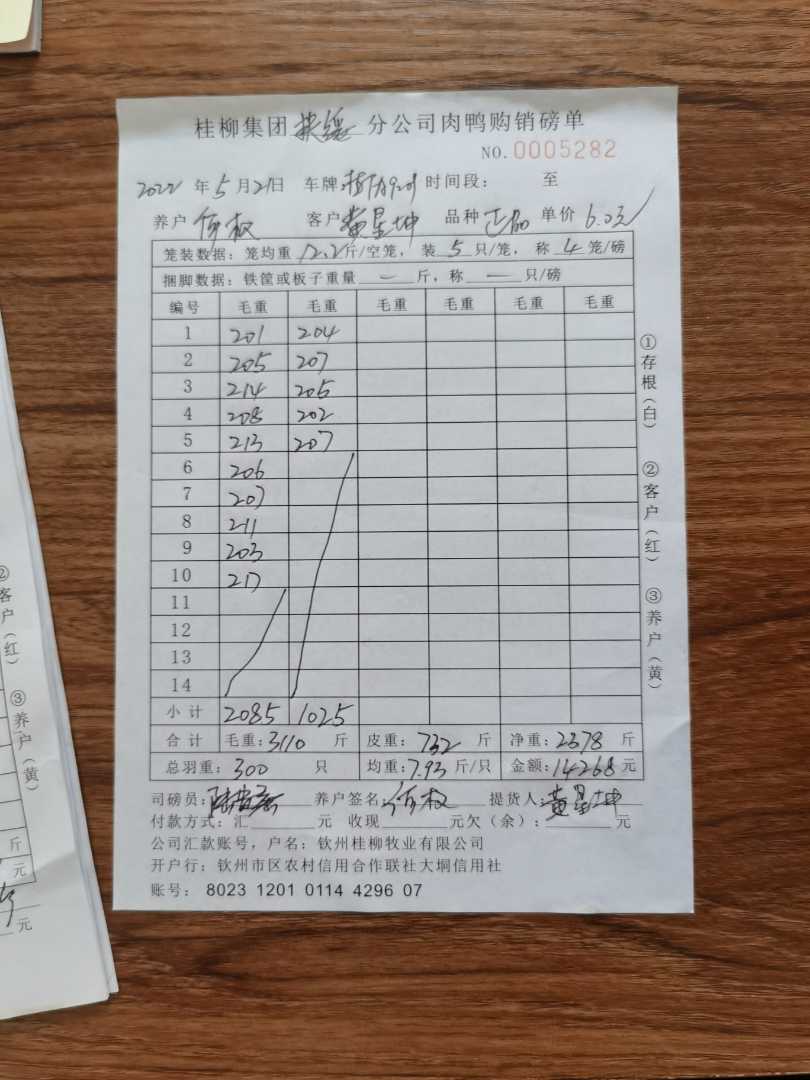 桂柳集团扶绥分公司肉鸭购销磅单
NO.0005282
2022年5月21日 车牌: 时间段: 至
养户 何权 客户 黄星坤 品种 正品 单价 6.03/
笼装数据: 笼均重 12.2斤/空笼, 装 5 只/笼, 称 4 笼/磅
捆脚数据: 铁筐或板子重量 — 斤, 称 — 只/磅
编号 毛重 毛重 毛重 毛重 毛重 毛重
1 201 204
2 205 207
3 214 205
4 208 202
5 213 207
6 206
7 207
8 211
9 203
10 217
11
12
13
14
小计 2085 1025
合计 毛重:3110 斤 皮重: 732 斤 净重:2378 斤
总羽重: 300 只 均重:7.93 斤/只 金额:14268元
司磅员: 养户签名 何权 提货人:黄星坤
付款方式: 汇 元 收现 元欠(余): 元
公司汇款账号, 户名: 钦州桂柳牧业有限公司
开户行: 钦州市区农村信用合作联社大垌信用社
账号: 8023 1201 0114 4296 07
①存根(白)
②客户(红)
③养户(黄)
②客户(红)
③养户(黄)
斤
元
元